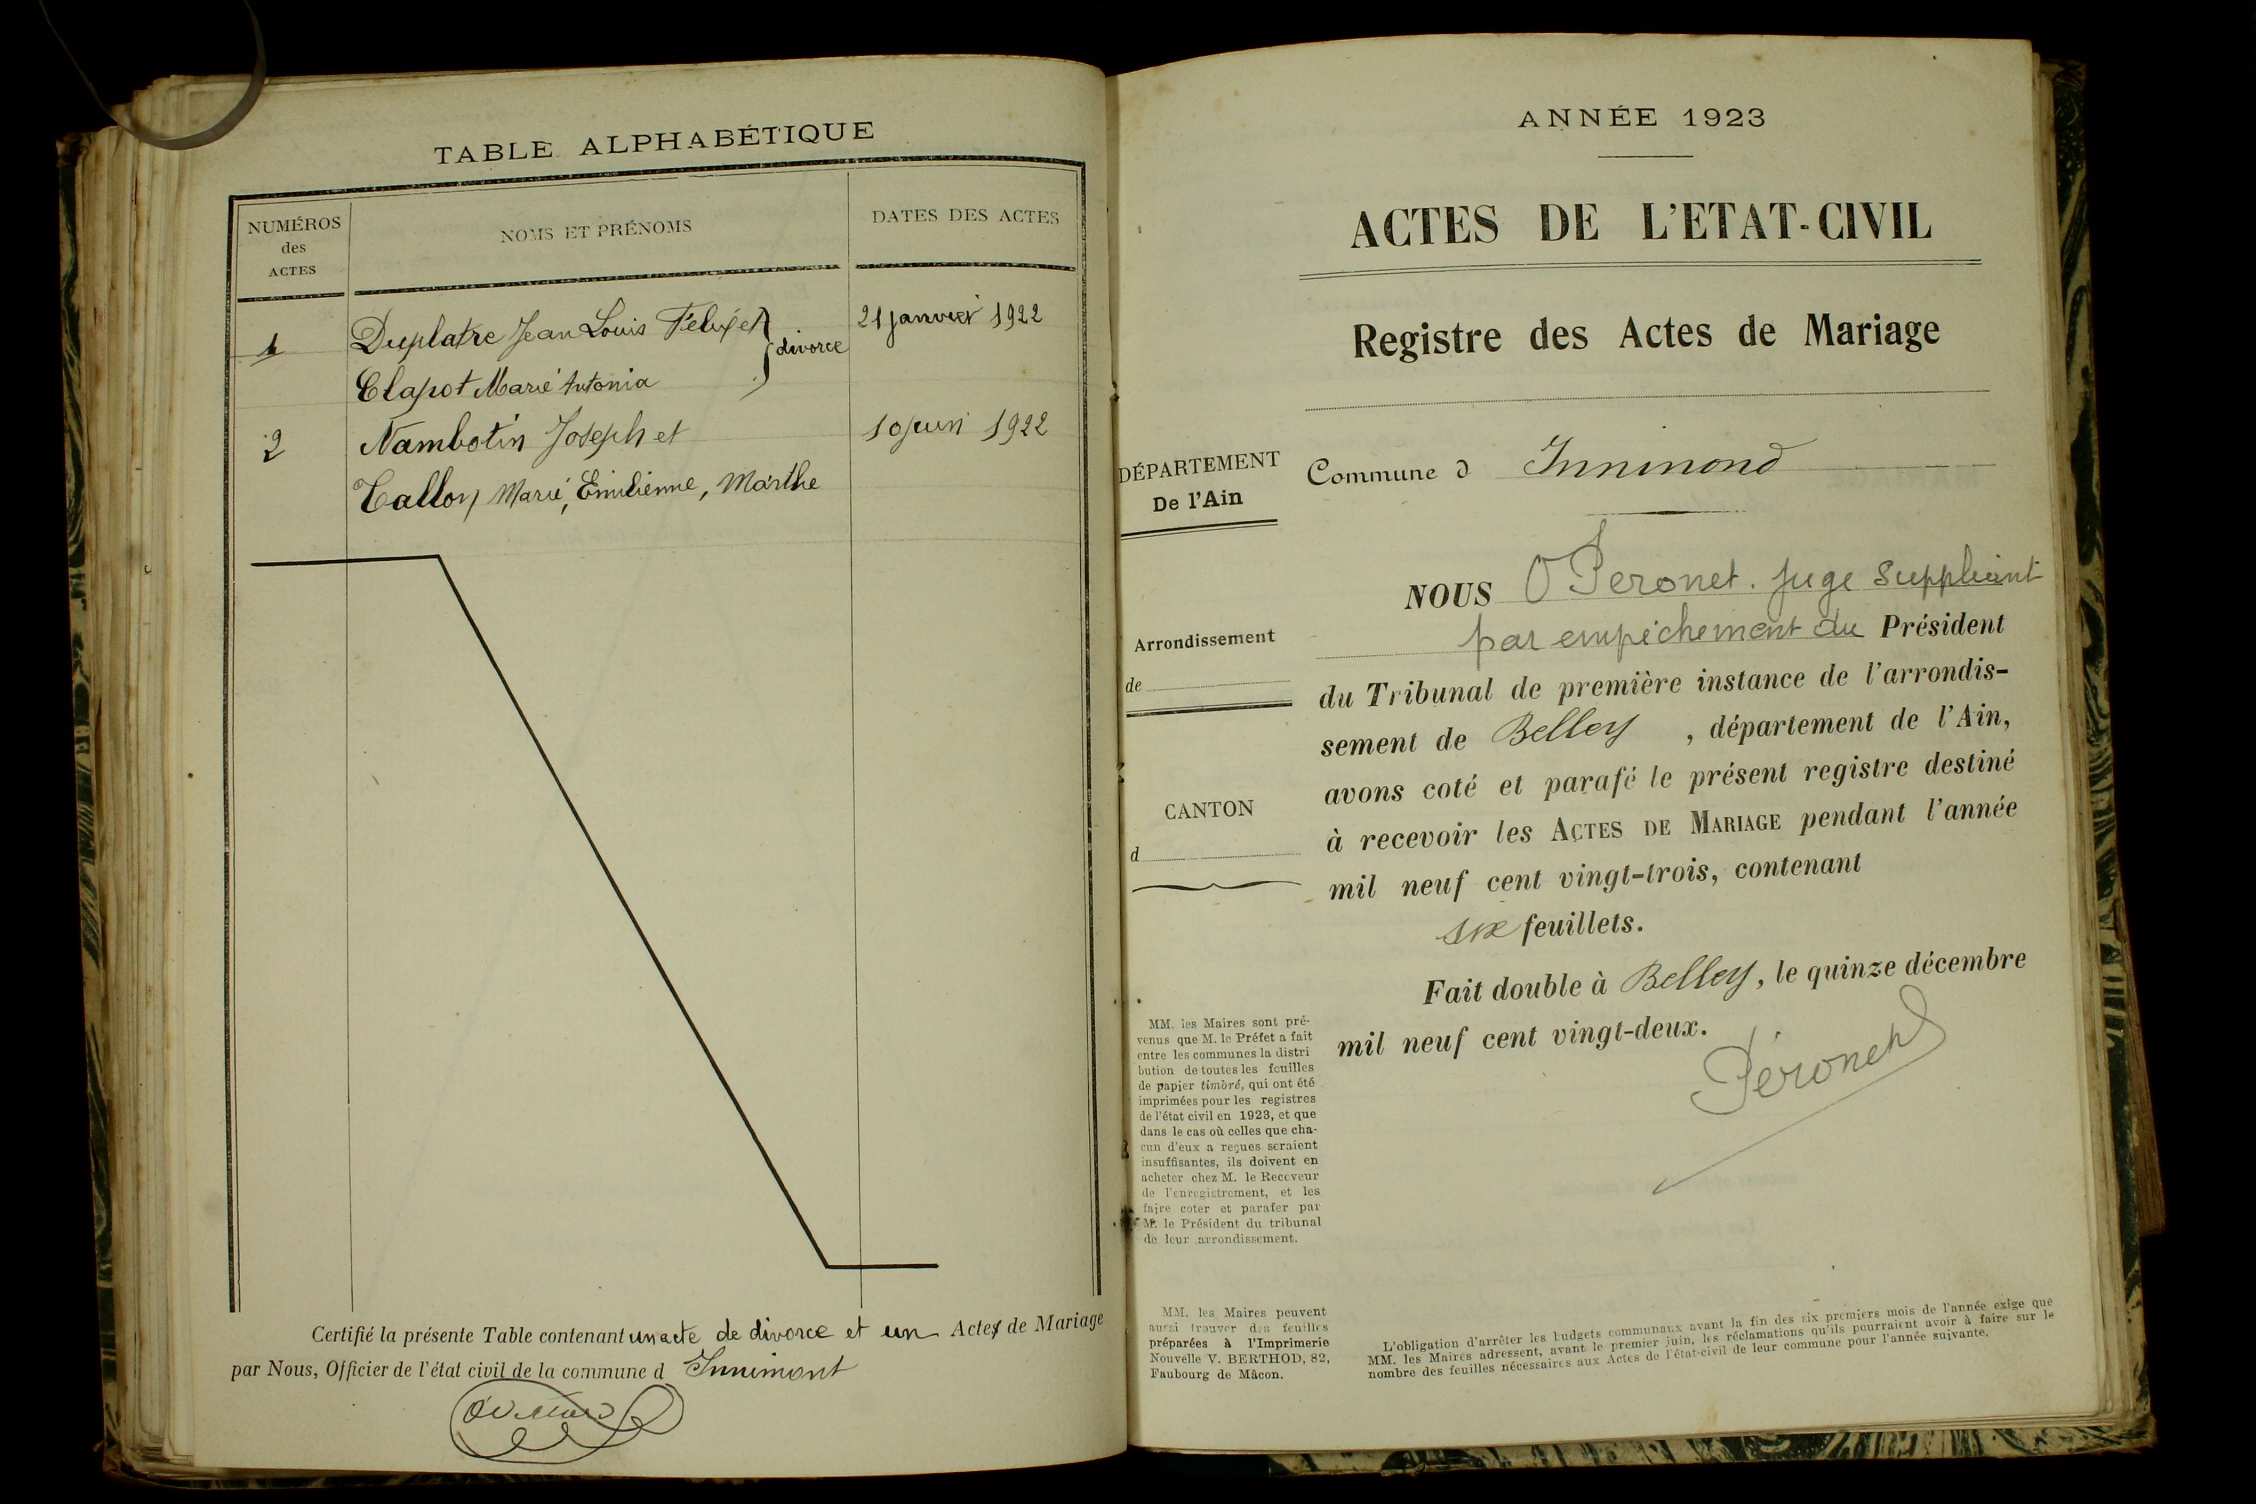 TABLE ALPHABÉTIQUE
NUMÉROS
des
ACTES
NOMS ET PRÉNOMS
DATES DES ACTES
1 Duplatre Jean Louis Félix et
Clapot Marie Antonia
divorce
21 janvier 1922
2 Nambotin Joseph et
Tallon Marie, Emilienne, Marthe
10 juin 1922
Certifié la présente Table contenant un acte de divorce et un Actes de Mariage
par Nous, Officier de l'état civil de la commune d Innimont
ANNÉE 1923
ACTES DE L'ETAT-CIVIL
Registre des Actes de Mariage
DÉPARTEMENT
De l'Ain
Commune d Innimond
Arrondissement
de
CANTON
d
NOUS Peronet. juge suppléant
par empêchement du Président
du Tribunal de première instance de l'arrondis-
sement de Belley , département de l'Ain,
avons coté et parafé le présent registre destiné
à recevoir les ACTES DE MARIAGE pendant l'année
mil neuf cent vingt-trois, contenant
six feuillets.
Fait double à Belley, le quinze décembre
mil neuf cent vingt-deux.
Péronet
MM. les Maires sont pré-
venus que M. le Préfet a fait
entre les communes la distri
bution de toutes les feuilles
de papier timbré, qui ont été
imprimées pour les registres
de l'état civil en 1923, et que
dans le cas où celles que cha-
cun d'eux a reçues seraient
insuffisantes, ils doivent en
acheter chez M. le Receveur
de l'enregistrement, et les
faire coter et parafer par
M. le Président du tribunal
de leur arrondissement.
MM. les Maires peuvent
aussi trouver des feuilles
préparées à l'Imprimerie
Nouvelle V. BERTHOD, 82,
Faubourg de Mâcon.
L'obligation d'arrêter les budgets communaux avant la fin des six premiers mois de l'année exige que
MM. les Maires adressent, avant le premier juin, les réclamations qu'ils pourraient avoir à faire sur le
nombre des feuilles nécessaires aux Actes de l'état-civil de leur commune pour l'année suivante.